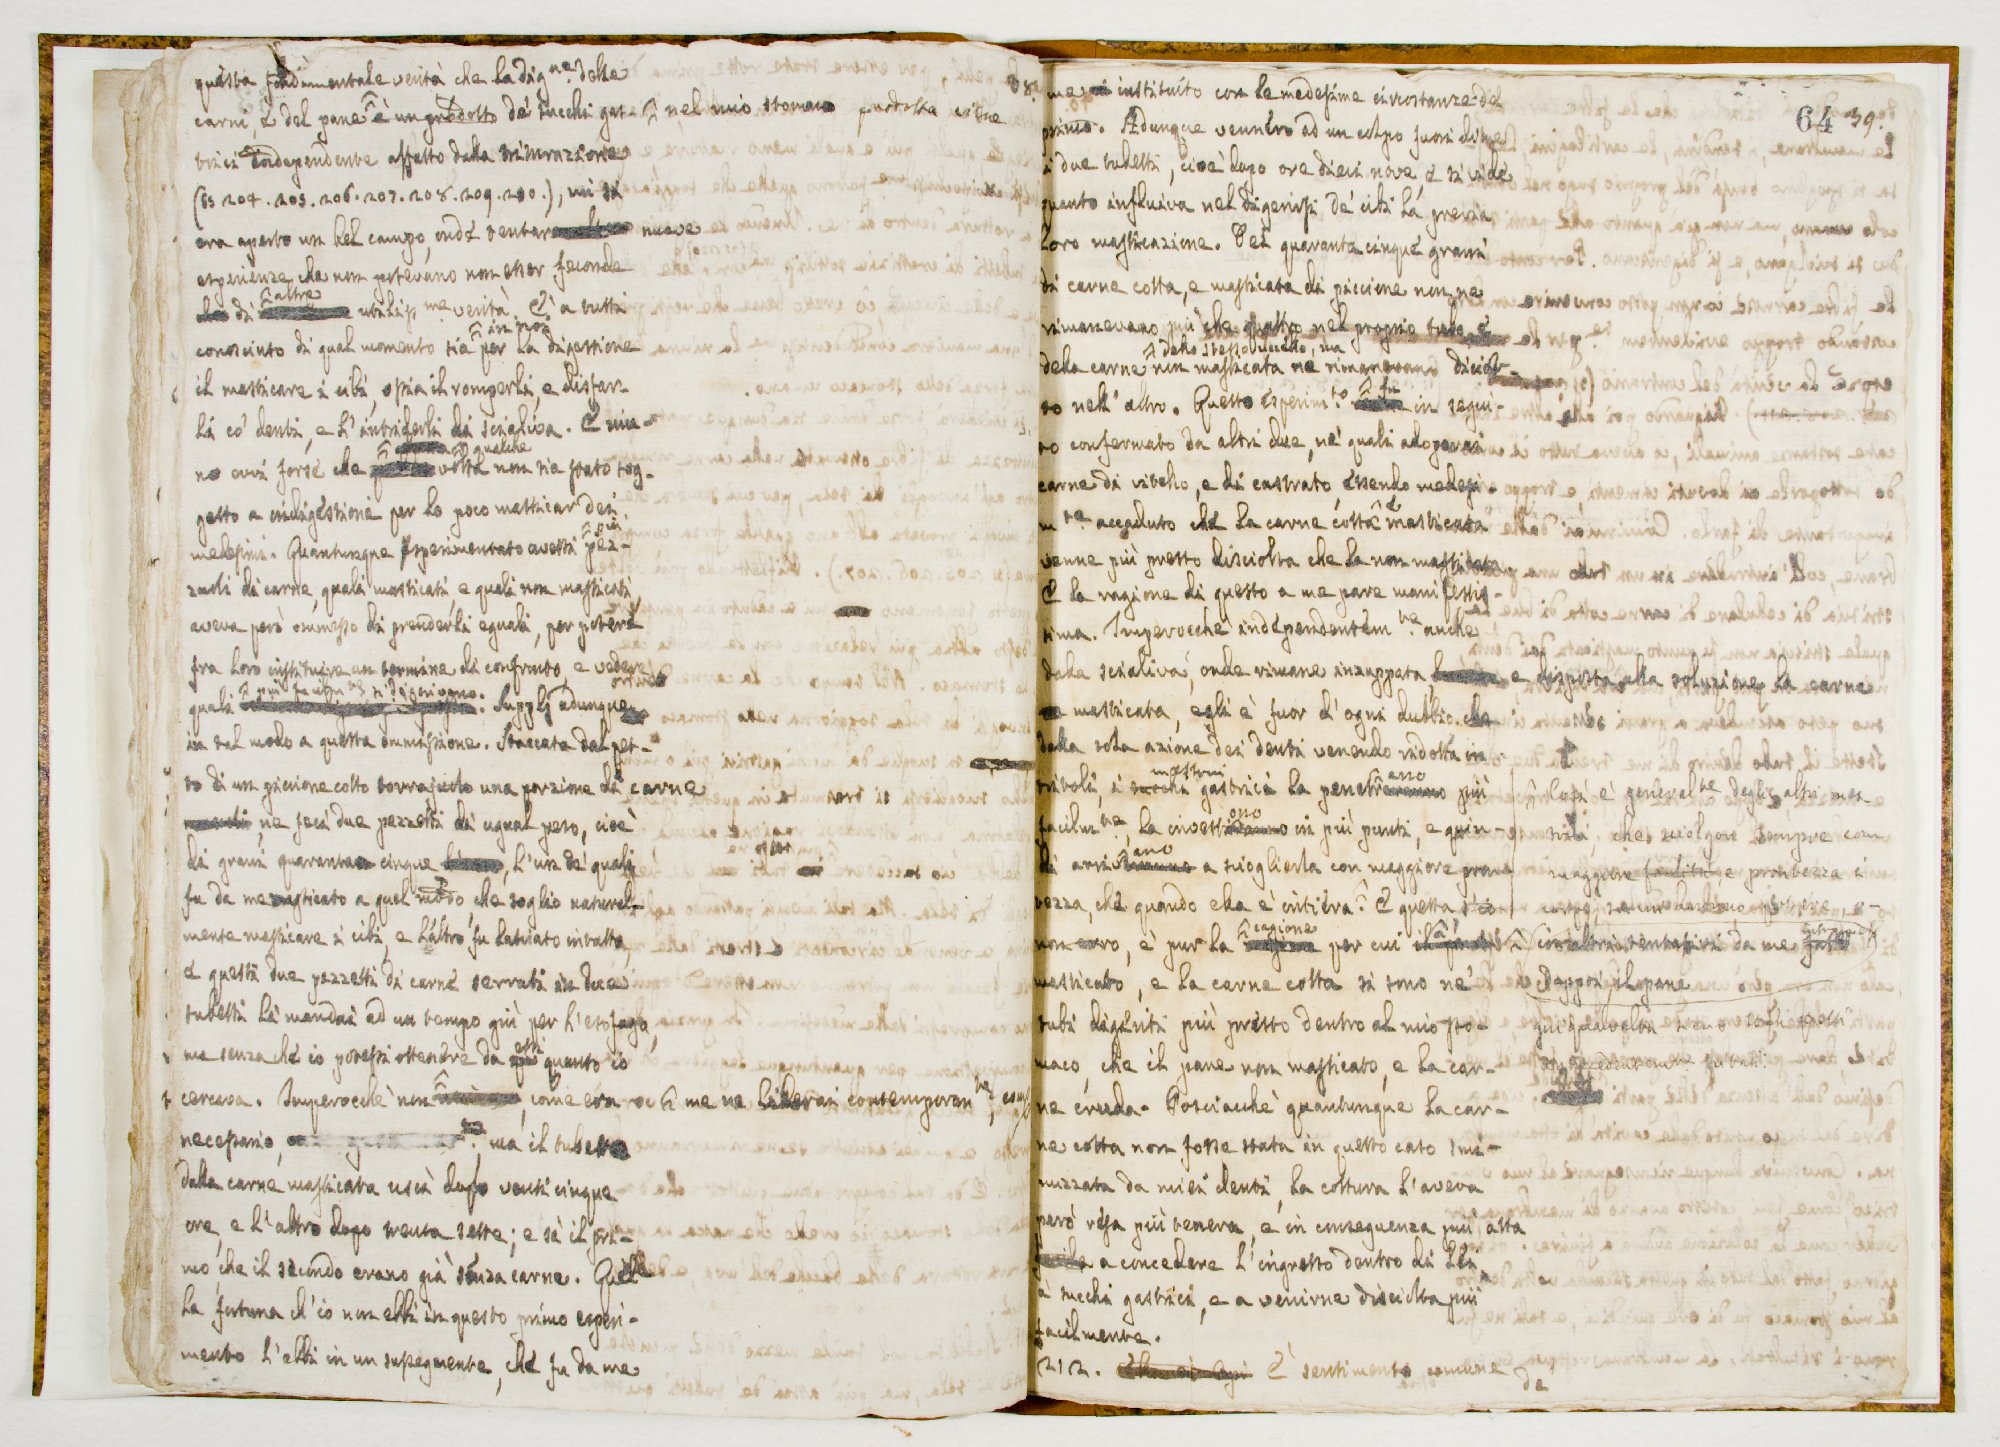 questa fondamentale verità che la dig.ne delle
carni, e del pane è un prodotto de' succhi gas- nel mio stomaco prodotta viene
trici independente affatto dalla triturazione
(§§ 204. 205. 206. 207. 208. 209. 210.), mi si
era aperto un bel campo, onde tentar nuove
esperienze, che non potevano non esser feconde
di altre utiliss.me verità. È a tutti
conosciuto di qual momento sia in noi per la digestione
il masticare i cibi, ossia il romperli, e disfar-
li co' denti, e l'intriderli di scialiva. E niu-
no evvi forse che qualche volta non sia stato sog-
getto a indigestione per lo poco masticar dei
medesimi. Quantunque sperimentato avessi più pez-
zuoli di carne, quali masticati e quali non masticati,
aveva però ommesso di prenderli eguali, per potere
fra loro instituire un termine di confronto, e vedere
quali più si digerivano. Supplj adunque
in tal modo a questa ommissione. Staccata dal pet-
to di un piccione cotto una porzione di carne
ne feci due pezzetti di ugual peso, cioè
di grani quaranta cinque, l'un de' quali
fu da me masticato a quel modo che soglio natural-
mente masticare i cibi, e l'altro fu lasciato intatto,
e questi due pezzetti di carne serrati in due
tubetti li mandai ad un tempo giù per l'esofago,
ma senza che io potessi ottenere da essi quanto io
cercava. Imperocchè non me ne liberai contemporan.te, come era
necessario, ma il tubetto
dalla carne masticata uscì dopo venti cinque
ore, e l'altro dopo trenta sette; e sì il pri-
mo, che il secondo erano già senza carne. Quel-
la fortuna ch'io non ebbi in questo primo esperi-
mento l'ebbi in un susseguente, che fu da me
64 39.
me instituito con le medesime circostanze del
primo. Adunque vennero ad un colpo fuori di me
i due tubetti, cioè dopo ore dieci nove, e si vide
quanto influiva nel digerirsi de' cibi la previa
loro masticazione. Dei quaranta cinque grani
di carne cotta, e masticata di piccione non ne
rimanevano più che quattro nel proprio tubo, e
della carne dello stesso uccello, ma non masticata ne rimanevano diciot-
to nell'altro. Questo esperim.to fu in segui-
to confermato da altri due, ne' quali adoperai
carne di vitello, e di castrato, essendo medesi-
m.te accaduto che la carne cotta e masticata
venne più presto disciolta che la non masticata.
E la ragione di questo a me pare manifestis-
sima. Imperocchè independentem.te anche
dalla scialiva, onde rimane inzuppata, e disposta alla soluzione la carne
masticata, egli è fuor d'ogni dubbio che
dalla sola azione dei denti venendo ridotta in
tritoli, i mestrui gastrici la penetrano più
facilm.te, la investono in più punti, e quin-
di arrivano a scioglierla con maggiore pron-
tezza, che quando ella è intiera. E questa s'io
non erro, è pur la cagione per cui
masticato, e la carne cotta si sono ne'
tubi digeriti più presto dentro al mio sto-
maco, che il pane non masticato, e la car-
ne cruda. Posciacchè quantunque la car-
ne cotta non fosse stata in questo caso smi-
nuzzata da miei denti, la cottura l'aveva
però resa più tenera, e in conseguenza più atta
a concedere l'ingresso dentro di lei
a succhi gastrici, e a venirne disciolta più
facilmente.
212. È sentimento comune
da
Così è general.te degli altri mes-
trui, che sciolgono sempre con
maggiore facilità, e prontezza i
corpi
con altri tentativi da me
dappoi, il pane
qui qualvolta sieno stati prosti